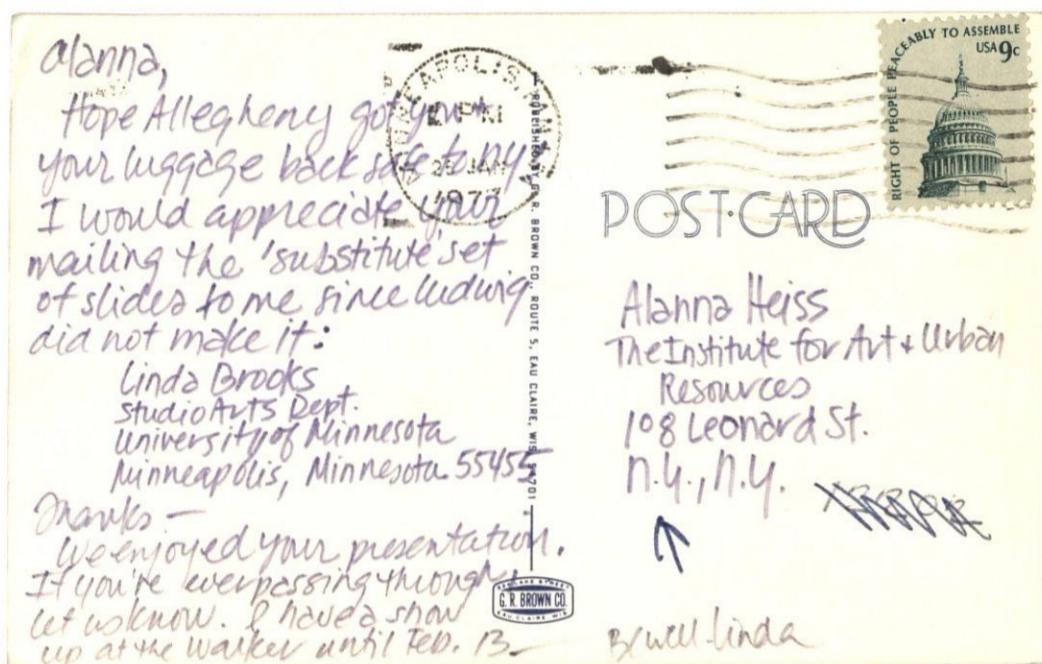 Alanna,
Hope Allegheny got you &
your luggage back safe to NY.
I would appreciate your
mailing the 'substitute' set
of slides to me since Ludwig
did not make it:
Linda Brooks
Studio Arts Dept.
University of Minnesota
Minneapolis, Minnesota 55455
Thanks —
We enjoyed your presentation.
If you're ever passing through,
let us know. I have a show
up at the Walker until Feb. 13 —
Be well - Linda
MINNEAPOLIS, MN
PM
25 JAN
1977
PUBLISHED BY G. R. BROWN CO., ROUTE 5, EAU CLAIRE, WIS. 54701
G. R. BROWN CO.
EAU CLAIRE WIS.
RIGHT OF PEOPLE PEACEABLY TO ASSEMBLE
USA 9c
POST·CARD
Alanna Heiss
The Institute for Art & Urban
Resources
108 Leonard St.
N.Y., N.Y.